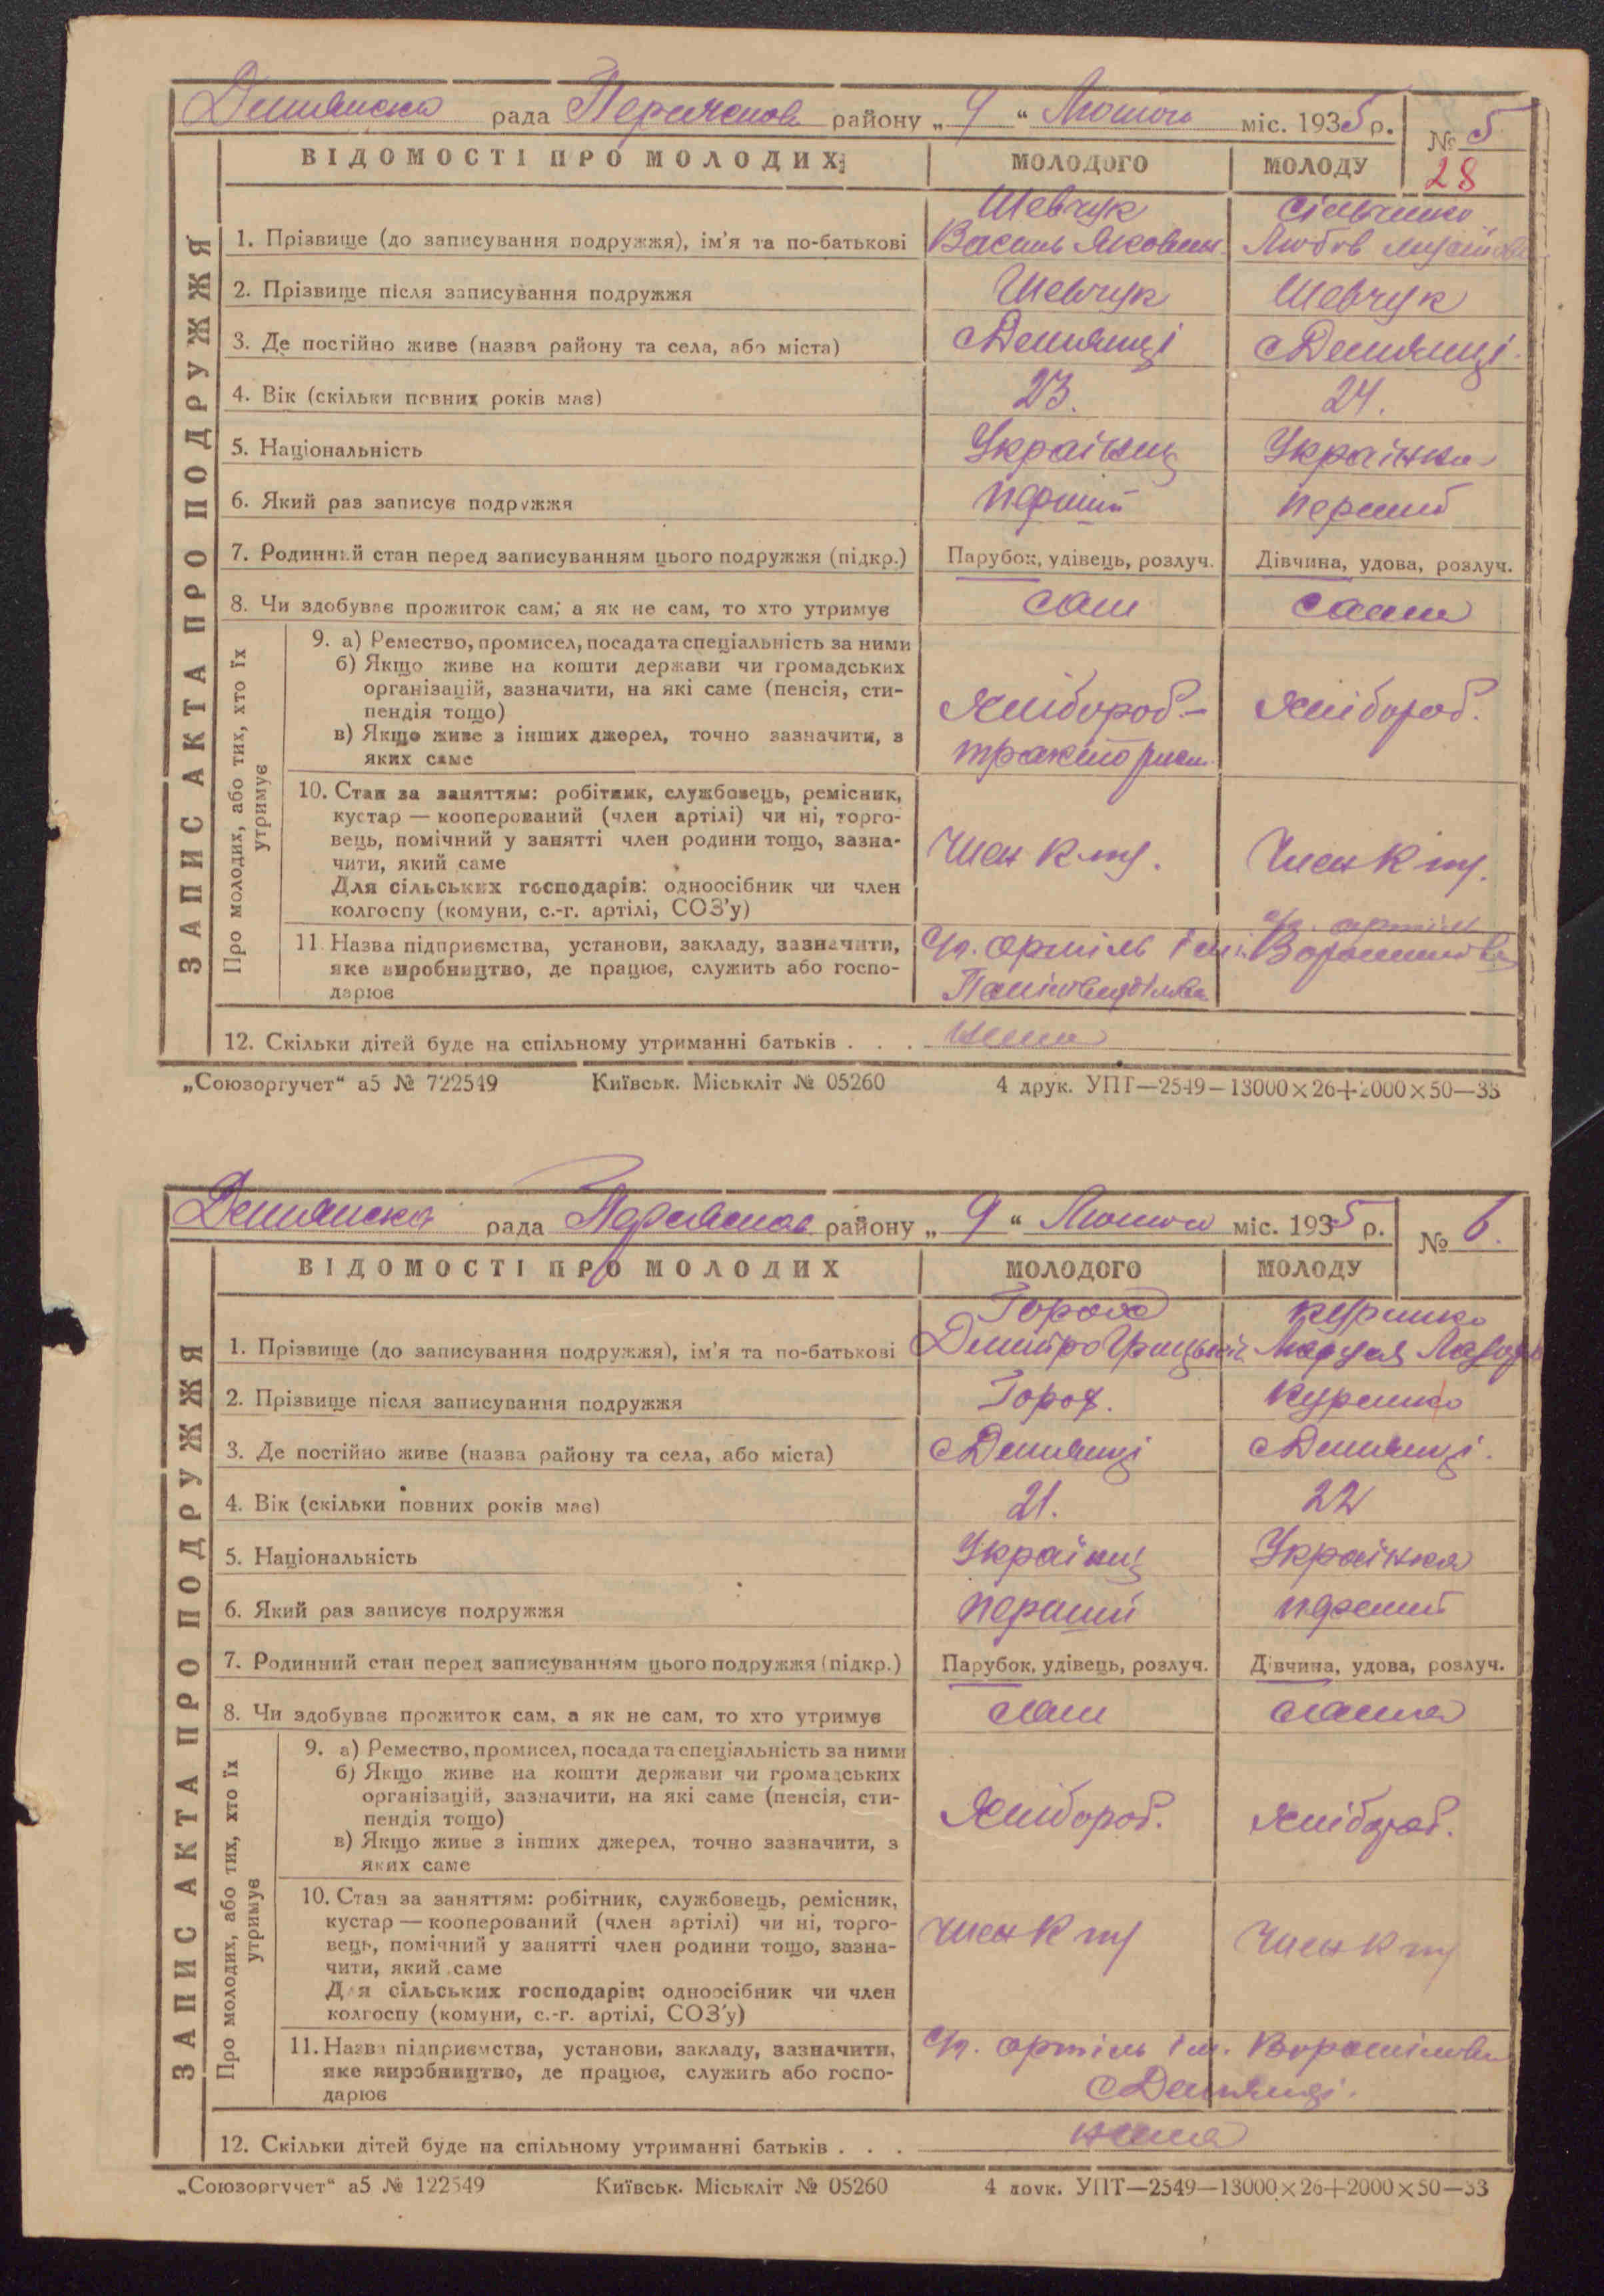 Демянска рада Переяслов району „ 9 “ Лютого міс. 1935 р.
№ 5
28
ВІДОМОСТІ ПРО МОЛОДИХ
МОЛОДОГО
МОЛОДУ
ЗАПИС АКТА ПРО ПОДРУЖЖЯ
1. Прізвище (до записування подружжя), ім'я та по-батькові
Шевчук
Василь Якович
Любов
2. Прізвище після записування подружжя
Шевчук
Шевчук
3. Де постійно живе (назва району та села, або міста)
с Демянці
с Демянці.
4. Вік (скільки повних років має)
23.
24.
5. Національність
Українец
Українка
6. Який раз записує подружжя
перший
перший
7. Родинний стан перед записуванням цього подружжя (підкр.)
Парубок, удівець, розлуч.
Дівчина, удова, розлуч.
8. Чи здобуває прожиток сам, а як не сам, то хто утримує
сам
сама
Про молодих, або тих, хто їх утримує
9. а) Ремество, промисел, посада та спеціальність за ними
б) Якщо живе на кошти держави чи громадських
організацій, зазначити, на які саме (пенсія, сти-
пендія тощо)
в) Якщо живе з інших джерел, точно зазначити, з
яких саме
хлібороб.-
тракторист.
хлібороб.
10. Стан за заняттям: робітник, службовець, ремісник,
кустар — кооперований (член артілі) чи ні, торго-
вець, помічний у занятті член родини тощо, зазна-
чити, який саме
Для сільських господарів: одноосібник чи член
колгоспу (комуни, с.-г. артілі, СОЗ'у)
Член К
Член К
11. Назва підприємства, установи, закладу, зазначити,
яке виробництво, де працює, служить або госпо-
дарює
с/г. артіль ім.
с/г. артіль
Ворошилова
12. Скільки дітей буде на спільному утриманні батьків . . .
нема
„Союзоргучет“ а5 № 722549 Київськ. Міськліт № 05260 4 друк. УПТ—2549—13000×26+2000×50—33
Демянска рада Переяслов району „ 9 “ Лютого міс. 1935 р.
№ 6.
ВІДОМОСТІ ПРО МОЛОДИХ
МОЛОДОГО
МОЛОДУ
ЗАПИС АКТА ПРО ПОДРУЖЖЯ
1. Прізвище (до записування подружжя), ім'я та по-батькові
Горох
Дмитро Грицьков
Куришко
2. Прізвище після записування подружжя
Горох.
Куришко
3. Де постійно живе (назва району та села, або міста)
с Демянці
с Демянці.
4. Вік (скільки повних років має)
21.
22
5. Національність
Українец
Українка
6. Який раз записує подружжя
перший
перший
7. Родинний стан перед записуванням цього подружжя (підкр.)
Парубок, удівець, розлуч.
Дівчина, удова, розлуч.
8. Чи здобуває прожиток сам, а як не сам, то хто утримує
сам
сама
Про молодих, або тих, хто їх утримує
9. а) Ремество, промисел, посада та спеціальність за ними
б) Якщо живе на кошти держави чи громадських
організацій, зазначити, на які саме (пенсія, сти-
пендія тощо)
в) Якщо живе з інших джерел, точно зазначити, з
яких саме
хлібороб.
хлібороб.
10. Стан за заняттям: робітник, службовець, ремісник,
кустар — кооперований (член артілі) чи ні, торго-
вець, помічний у занятті член родини тощо, зазна-
чити, який саме
Для сільських господарів: одноосібник чи член
колгоспу (комуни, с.-г. артілі, СОЗ'у)
член К
член К
11. Назва підприємства, установи, закладу, зазначити,
яке виробництво, де працює, служить або госпо-
дарює
с/г. артіль ім. Ворошилова
с Демянці.
12. Скільки дітей буде на спільному утриманні батьків . . .
нема
„Союзоргучет“ а5 № 122549 Київськ. Міськліт № 05260 4 друк. УПТ—2549—13000×26+2000×50—33